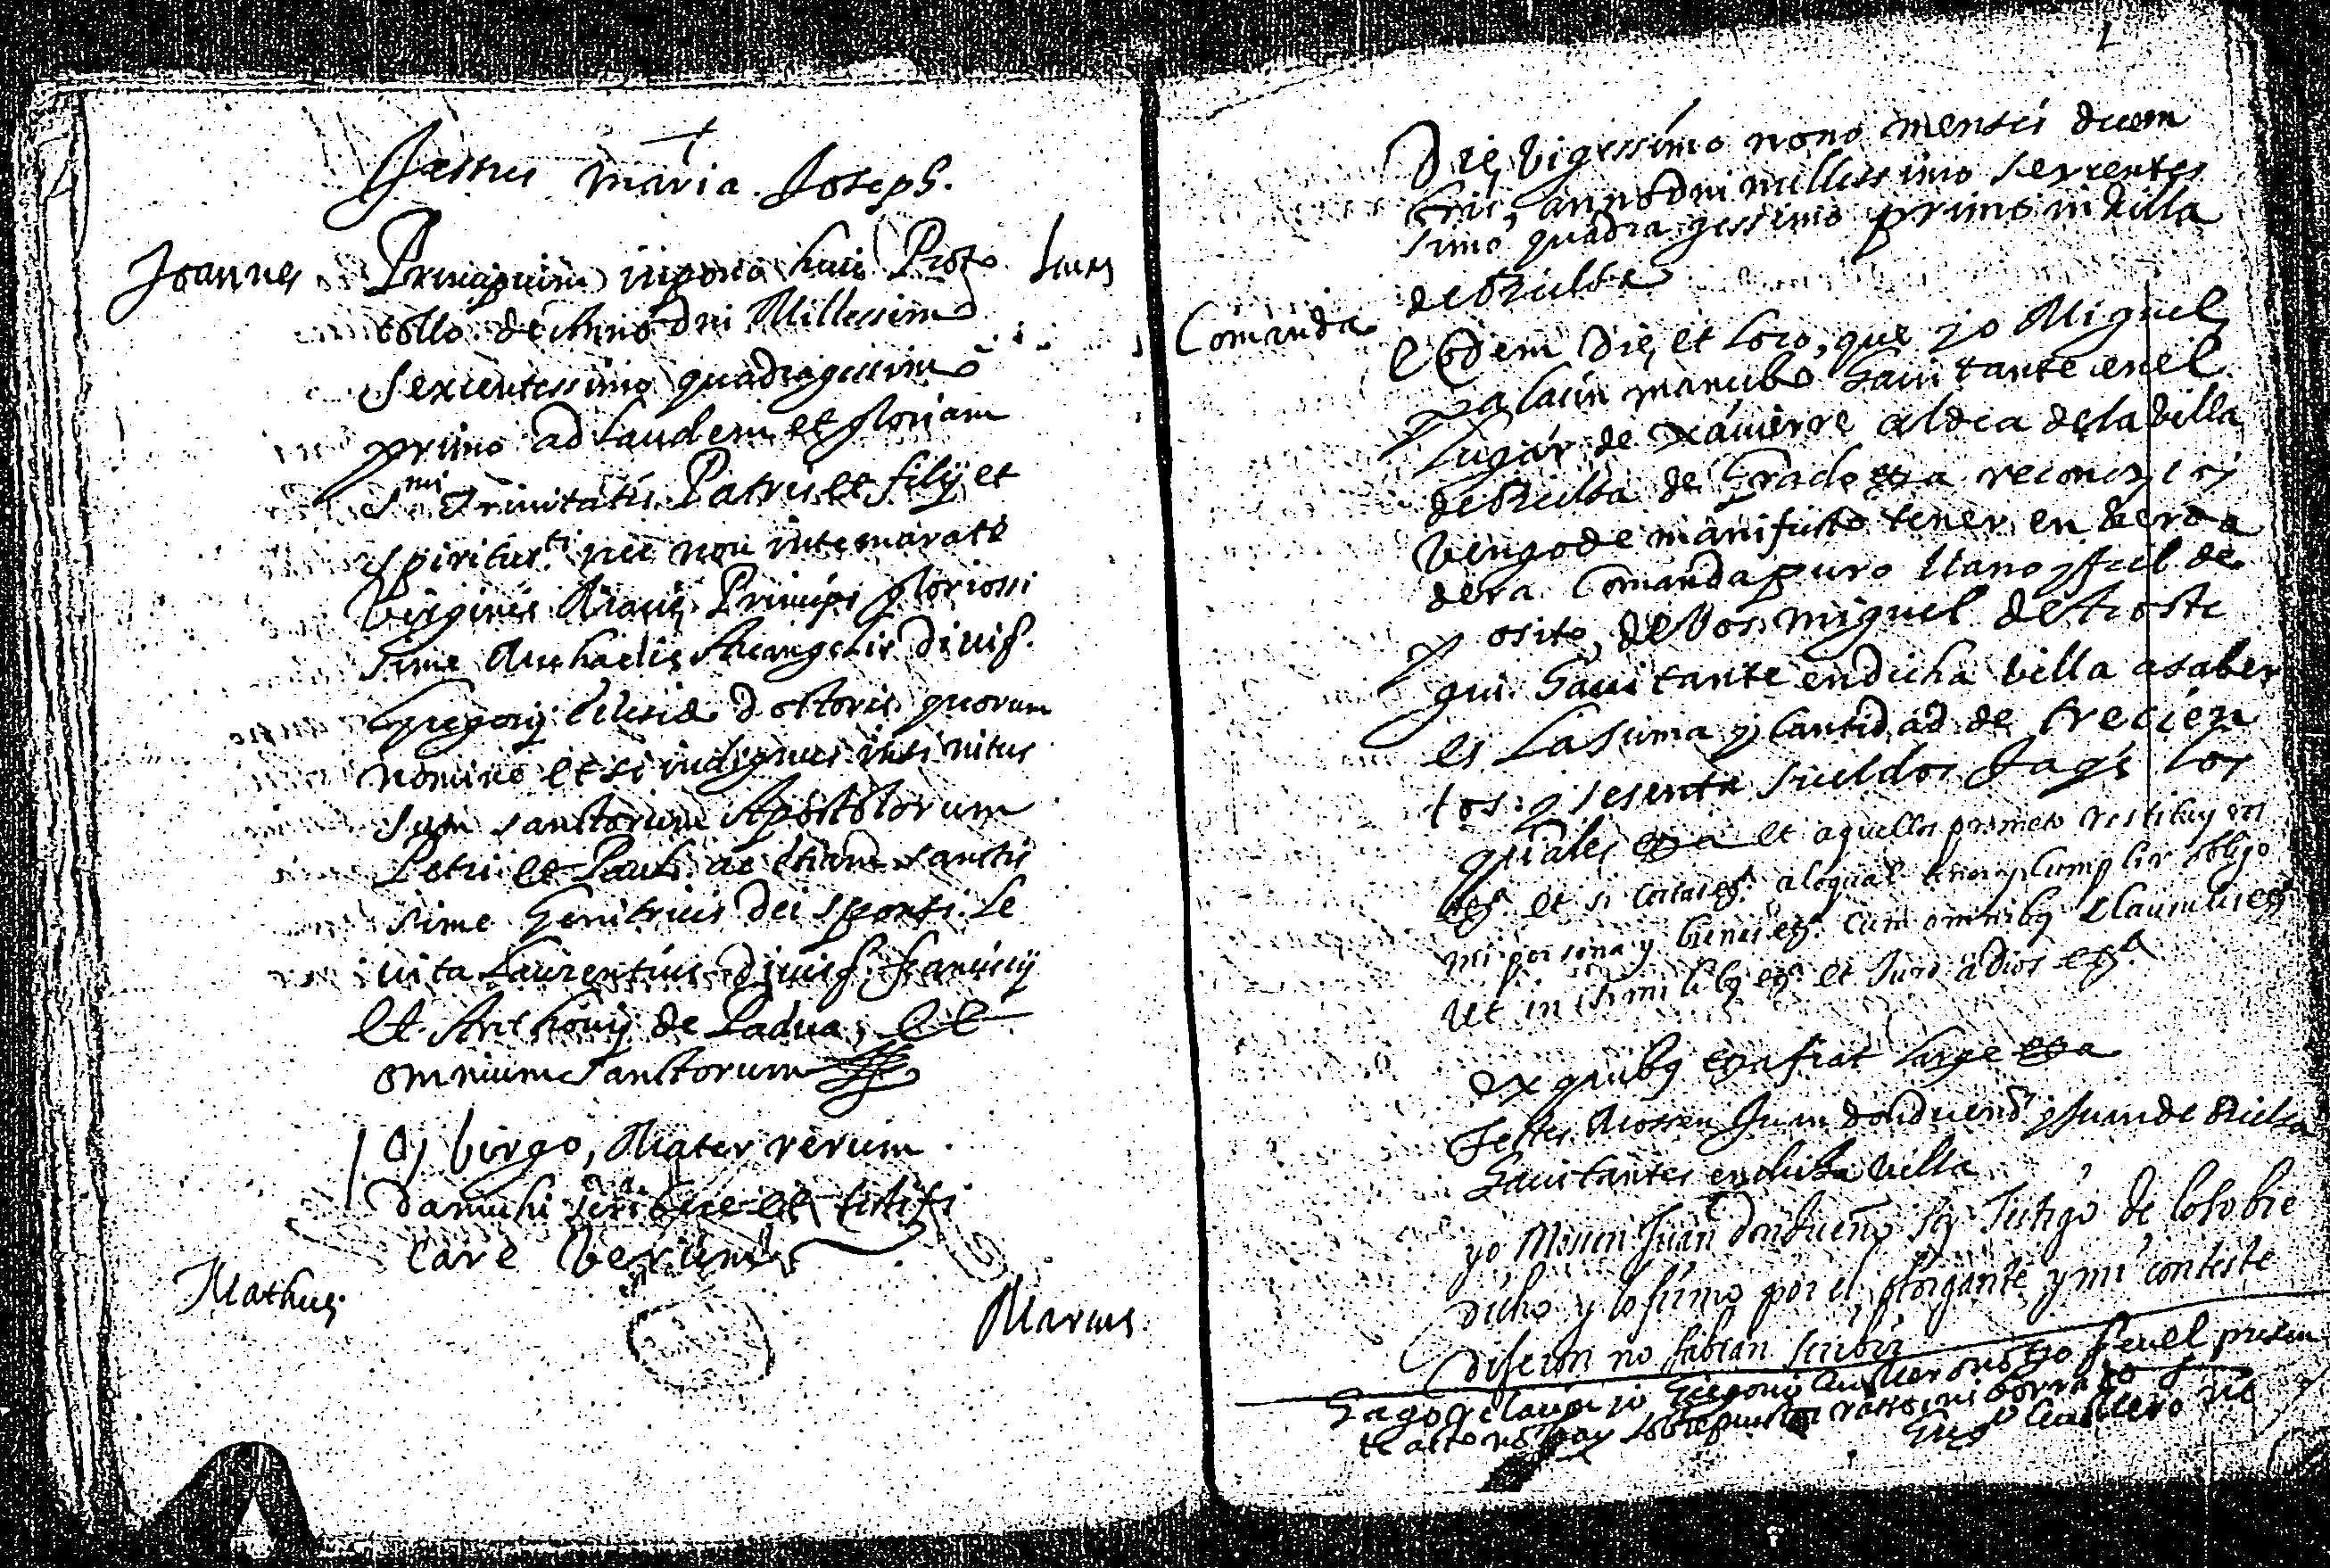 Jesus Maria. Joseph.
Joannes
Lucas
Principium inpono huic Proto
collo de Anno Dni Millessimo
sexcentessimo quadragessimo
primo ad laudem et gloriam
Smi Trinitatis Patris et filij et
spiritus sti nec non intemerate
Virginis Marie Principis gloriossi
sime Michaelis Archangelis Divis.
Gregorij Eclesie doctoris quorum
nomine et si indignus insinitus
sum sanctorum Apostolorum
Petri et Pauli ac etiam sanctis
sime Genitricis Dei sponsi. Le
uita Laurentius Divis. francisij
et Anthonij de Padua, et
omnium sanctorum
O birgo, Mater rerum
da mihi scribere et testifi
care Verum
Matheus
Marcus
1
Die Vigessimo nono mensis decem
bris, anno Dni millessimo sexcentes
simo quadragessimo primo in Villa
de Vielsa
Comanda
Eodem Die et Loco, que yo Miguel
Palacin mancebo hauitante en el
Lugar de Xauierre aldea de la billa
de Vielsa de Grado etca reconozco i
bengo de manifiesto tener en berda
dera Comanda puro llano y fiel de
posito, de Vos Miguel de
gui hauitante en dicha billa a saber
es La suma y Cantidad de trecien
tos y sesenta sueldos Jaqs los
quales etca et aquellos prometo restituyros
etc. et si contra etc. a lo qual tener y cumplir obligo
mi persona y bienes etc. cum omnibq clausulis etc
ut in similibq etc. et Juro a dios etca
ex quibq etca fiat large etca
Testes Mossen Juan Donduerno y Juan de Vielsa
hauitantes en dicha villa
yo Mossen Juan Donduerno soy Testigo de lo sobre
dicho y lo firmo por el otorgante y mi conteste
dijeron no sabian scribir